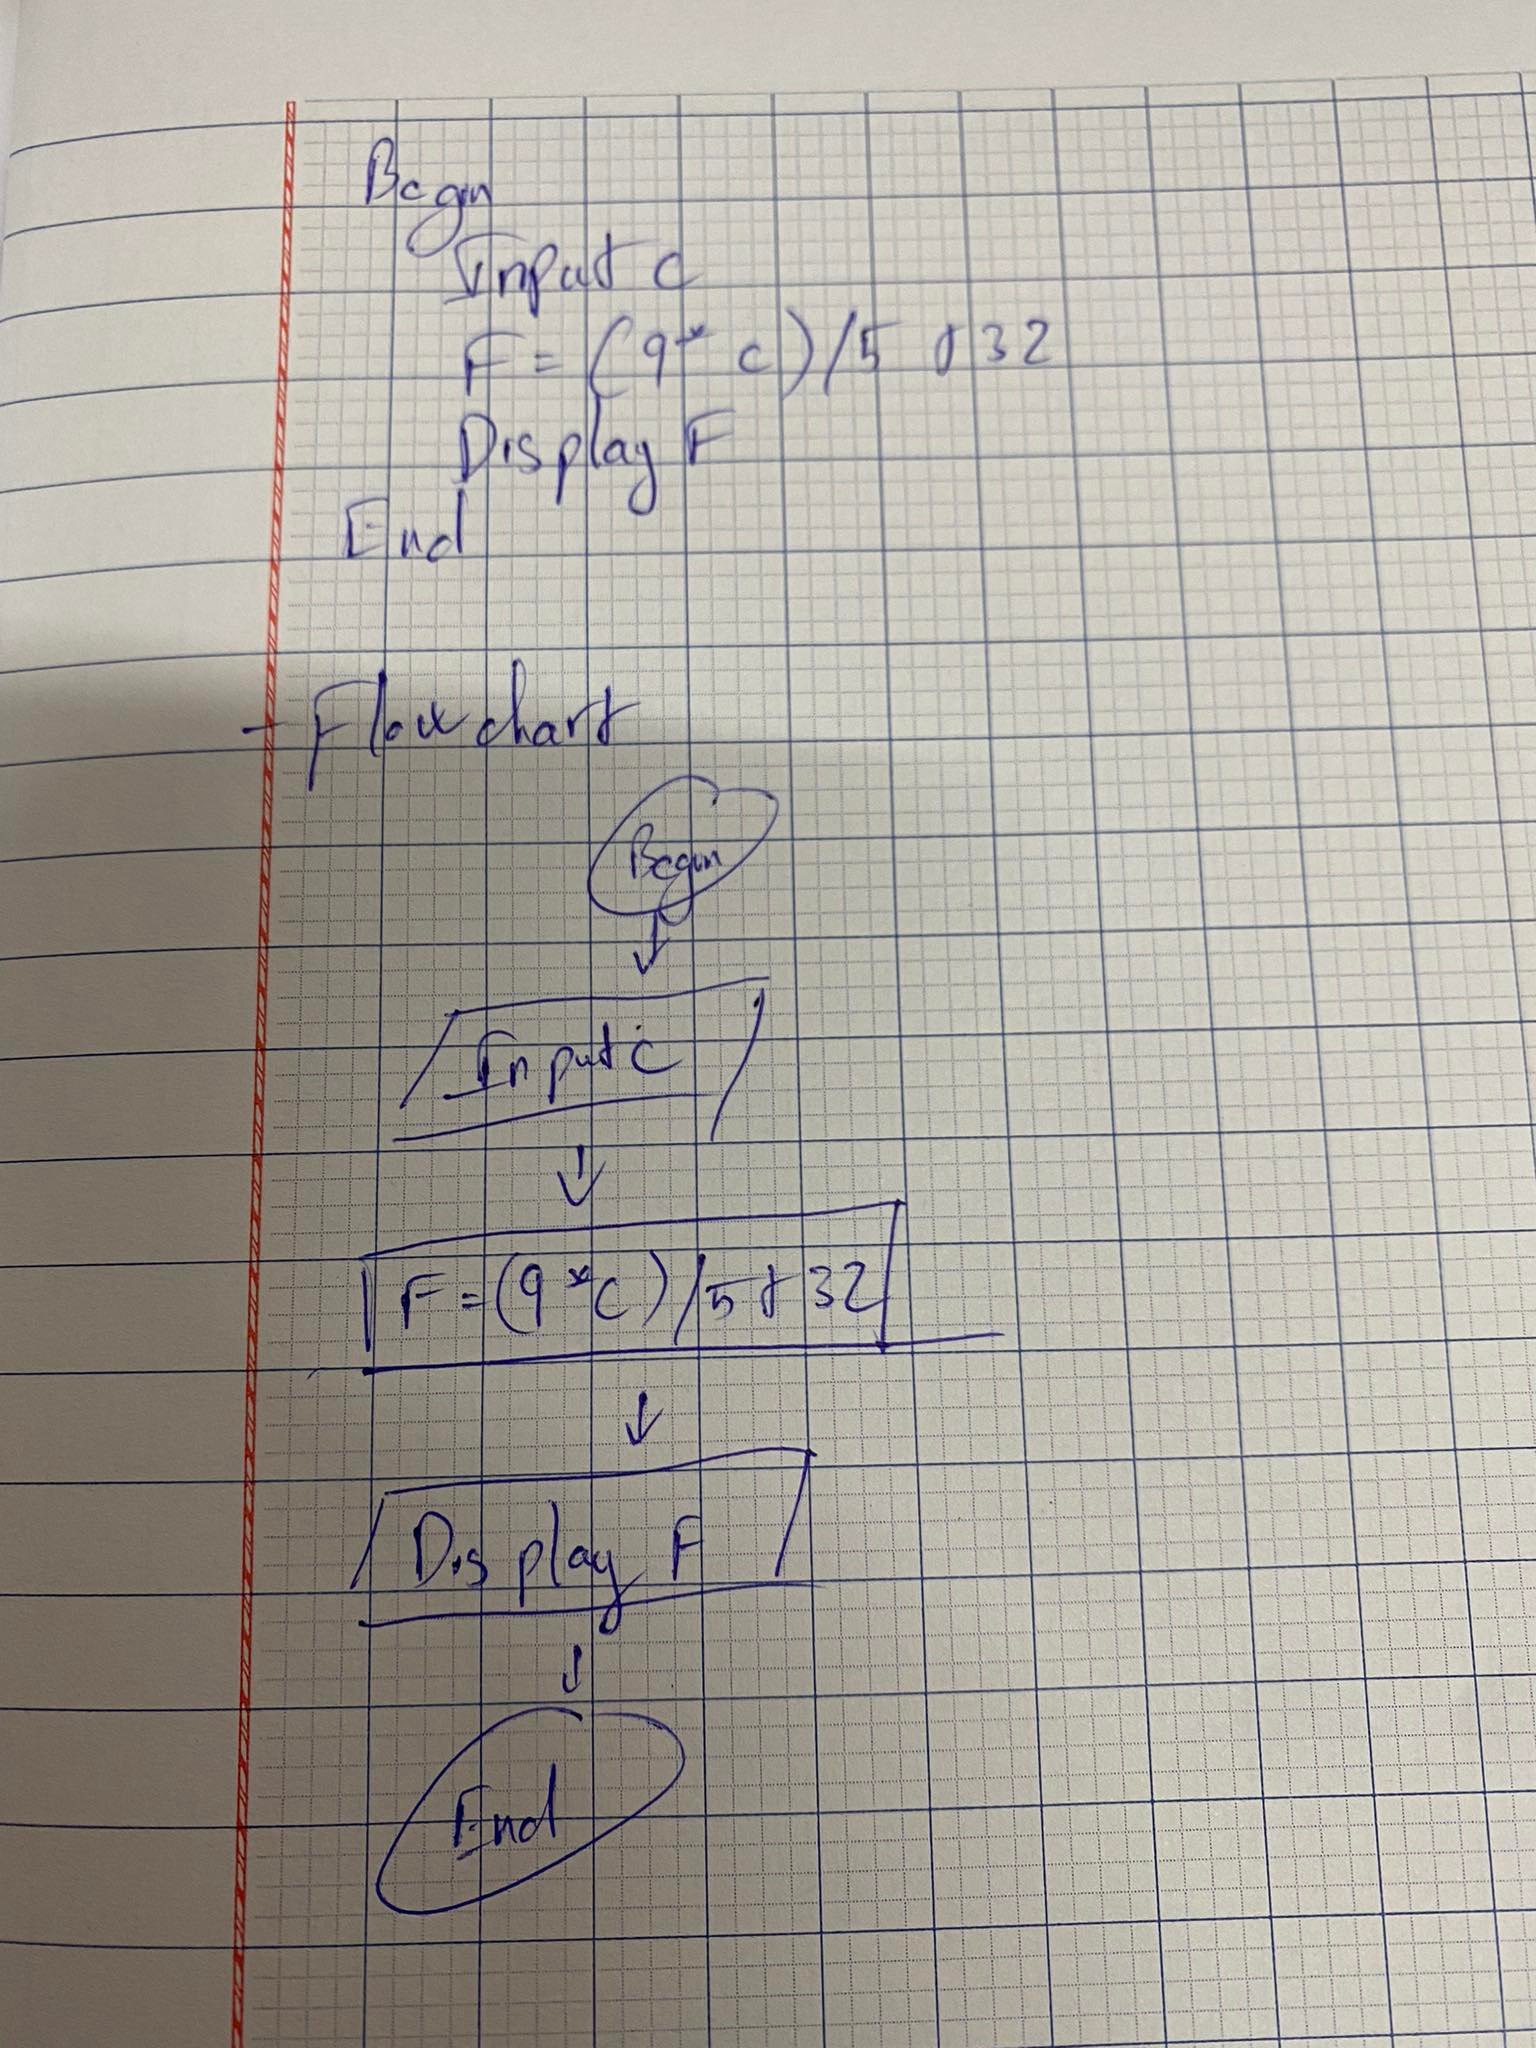 Begin
Input c
F = (9 * c) / 5 + 32
Display F
End
- Flowchart
Begin
Input c
F = (9 * c) / 5 + 32
Display F
End